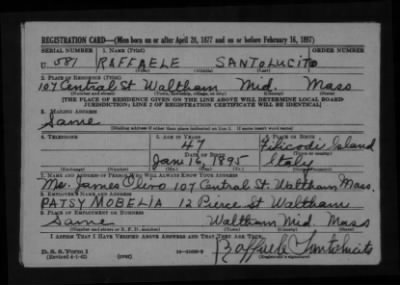 REGISTRATION CARD—(Men born on or after April 28, 1877 and on or before February 16, 1897)
SERIAL NUMBER 1. NAME (Print) ORDER NUMBER
U 581 RAFFAELE SANTOLUCITO
(First) (Middle) (Last)
2. PLACE OF RESIDENCE (Print)
107 Central St Waltham Mid. Mass
(Number and street) (Town, township, village, or city) (County) (State)
[THE PLACE OF RESIDENCE GIVEN ON THE LINE ABOVE WILL DETERMINE LOCAL BOARD
JURISDICTION; LINE 2 OF REGISTRATION CERTIFICATE WILL BE IDENTICAL]
3. MAILING ADDRESS
Same
[Mailing address if other than place indicated on line 2. If same insert word same]
4. TELEPHONE 5. AGE IN YEARS 6. PLACE OF BIRTH
47 Filicodi Island
DATE OF BIRTH
Jan 16, 1895 Italy
7. NAME AND ADDRESS OF PERSON WHO WILL ALWAYS KNOW YOUR ADDRESS
James Olivo 107 Central St. Waltham Mass.
8. EMPLOYER'S NAME AND ADDRESS
PATSY MOBELIA 12 Pierce St Waltham
9. PLACE OF EMPLOYMENT OR BUSINESS
Same Waltham Mid. Mass
(Number and street or R. F. D. number) (Town) (County) (State)
I AFFIRM THAT I HAVE VERIFIED ABOVE ANSWERS AND THAT THEY ARE TRUE.
D. S. S. Form 1 Raffaele Santolucito
(Revised 4-1-42) (over) (Registrant's signature)